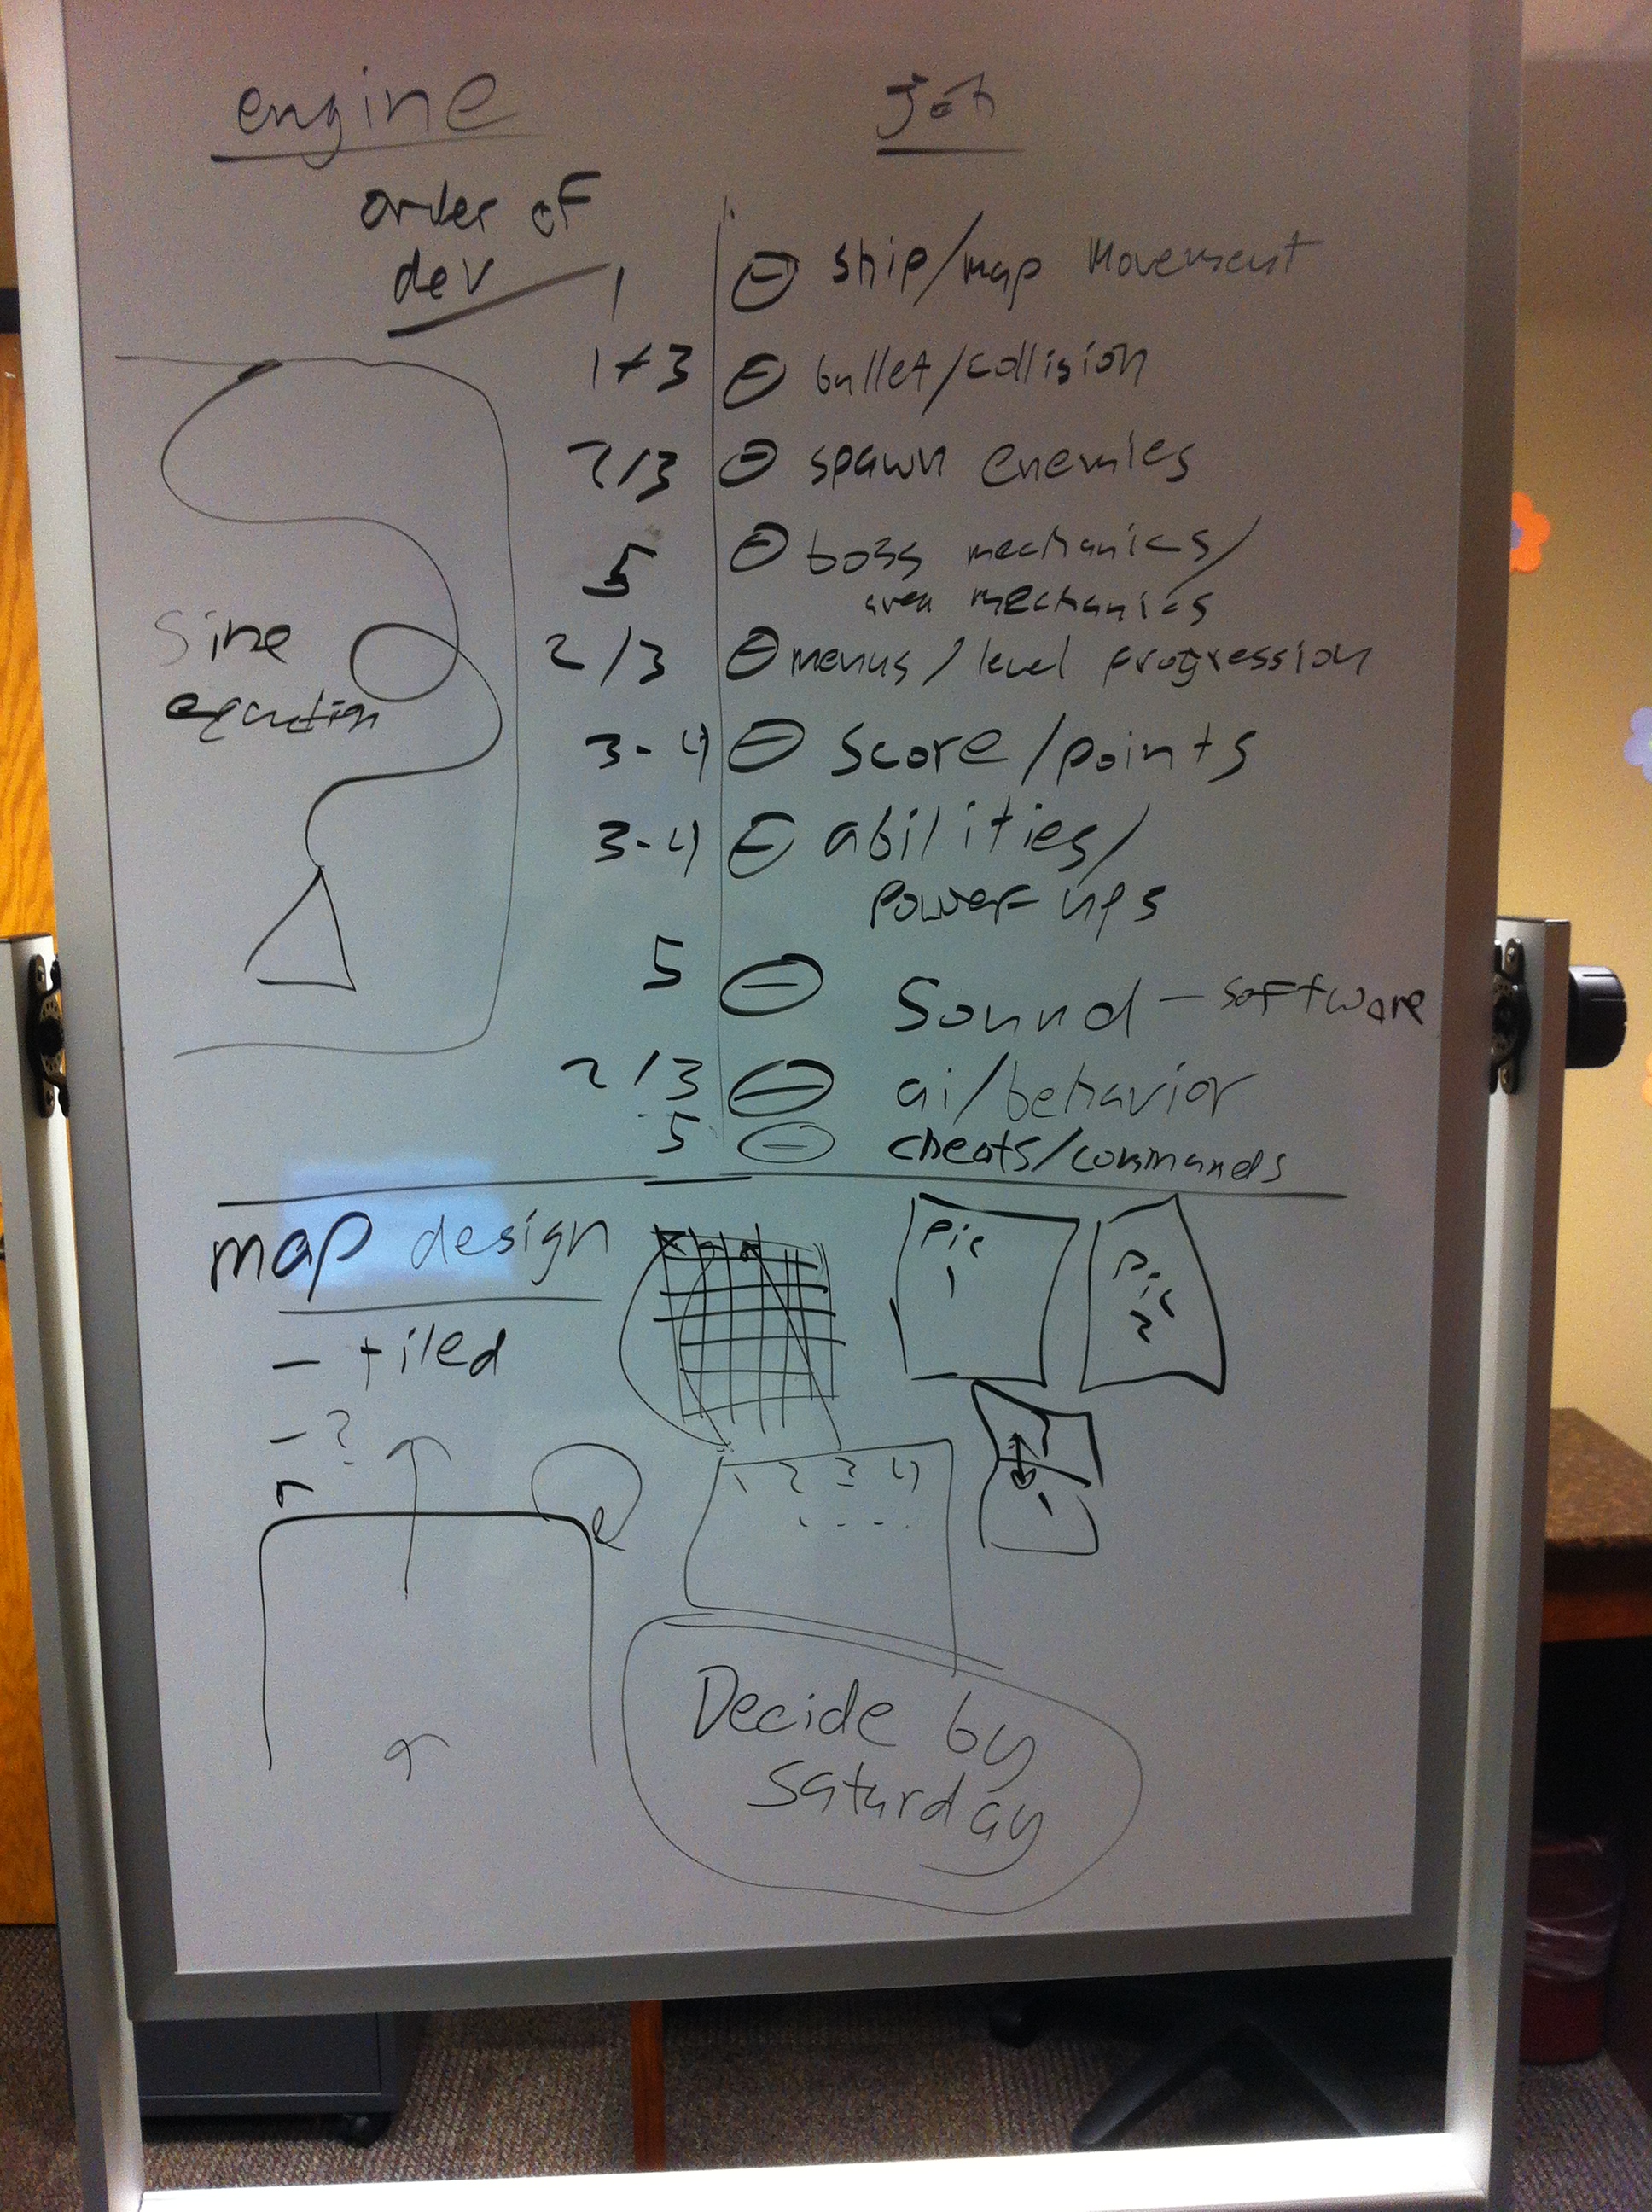 engine
job
order of
dev
1 ship/map movement
1+3 bullet/collision
2/3 spawn enemies
5 boss mechanics/
area mechanics
2/3 menus/level progression
3-4 score/points
3-4 abilities/
power ups
5 Sound - software
2/3 ai/behavior
5 cheats/commands
Sine
equation
map design
- tiled
- ?
pic
1
pic
2
1 2 3 4
Decide by
Saturday